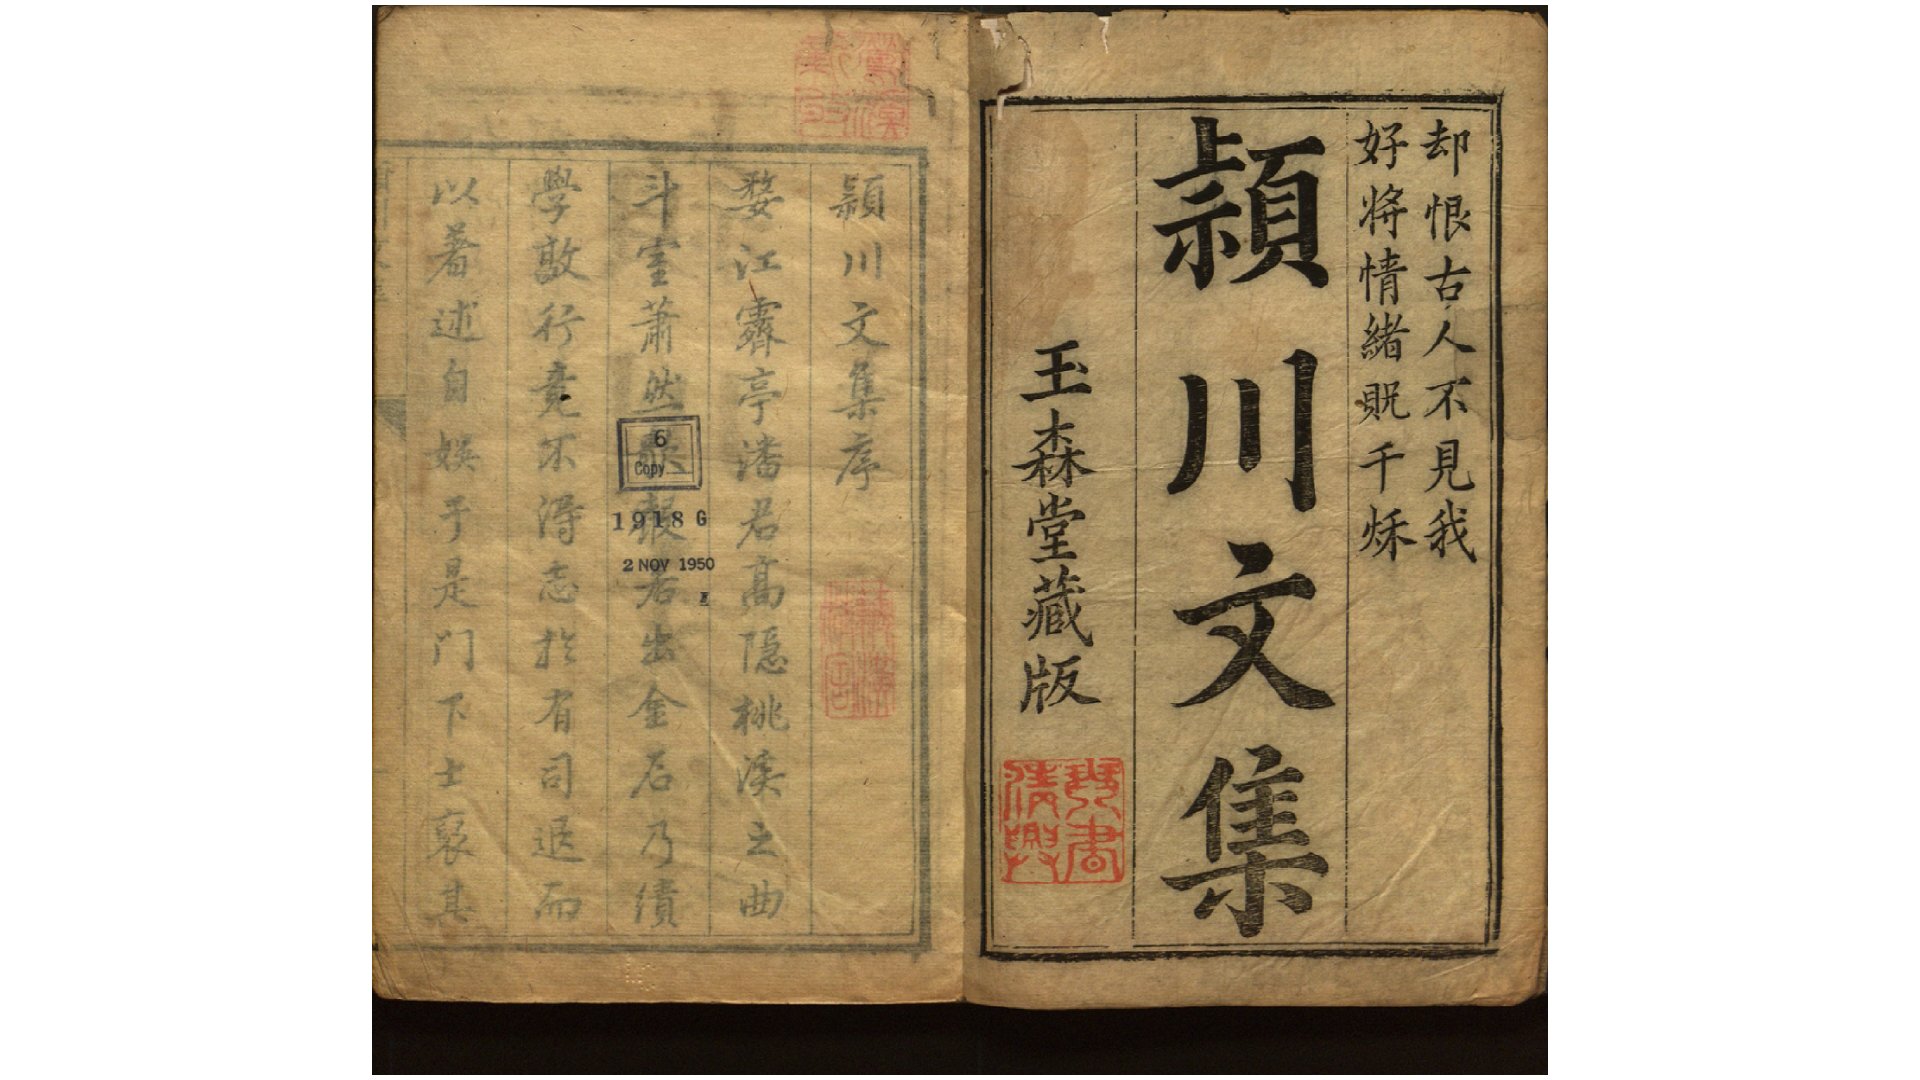 却恨古人不見我
好将情緒貺千秌
頴川文集
玉森堂藏版
頴川文集序
婺江霽亭潘君高隠桃溪之曲
斗室蕭然歌
報君出金石乃績
學敦行竟不得志於有司退而
以著述自娛于是門下士裒其
6
Copy
1918 G
2 NOV 1950